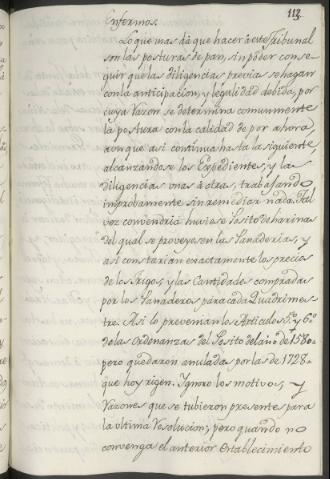 112
Enfermos.
Lo que mas dà que hacer à este Tribunal
son las posturas de pan, sin poder conse-
guir que las diligencias previas se hagan
con la anticipacion, y legalidad debida, por
cuya razon se determina comunmente
la postura con la calidad de por ahora,
aunque asi continua hasta la siguiente,
alcanzandose los Expedientes, y las
diligencias unas à otras, trabajando
improbamente sin remediar nada. Tal
vez convendria huviese Posito de harina
del qual se proveyesen las Panaderias, y
asi constarian exactamente los precios
de los trigos, y las Cantidades compradas
por los Panaderos para cada Quadrimes-
tre. Asi lo prevenian los Articulos 5.º y 6.º
de las Ordenanzas del Posito del año de 1580,
pero quedaron anuladas por las de 1728
que hoy rigen. Ignoro los motivos, y
razones que se tubieron presentes para
la ultima resolucion; pero quando no
convenga el anterior establecimiento